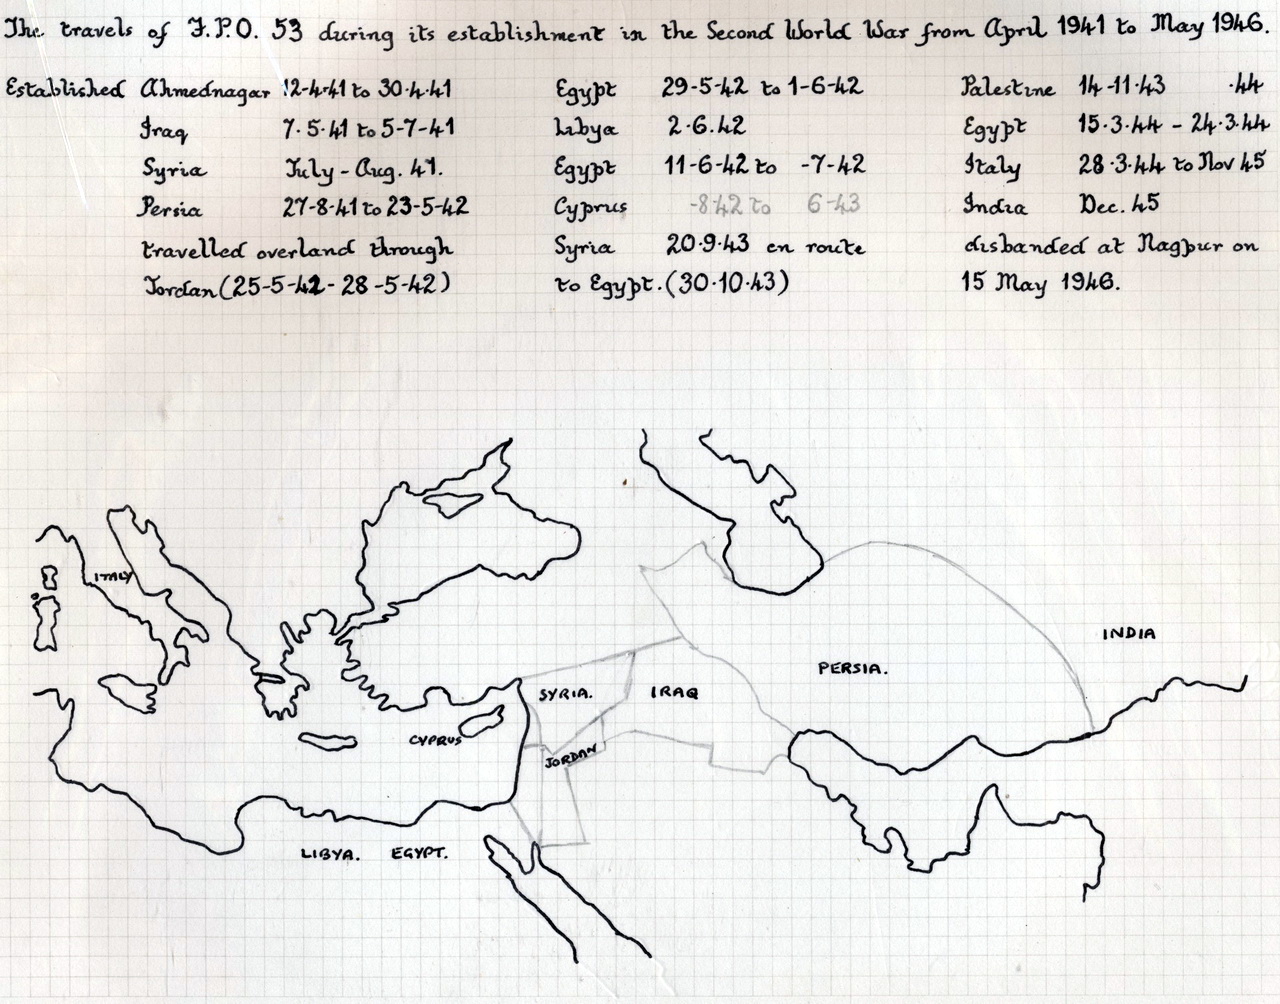 The travels of F.P.O. 53 during its establishment in the Second World War from April 1941 to May 1946.
Established Ahmednagar 12-4-41 to 30.4.41
Iraq 7.5.41 to 5-7-41
Syria July - Aug. 41.
Persia 27-8-41 to 23-5-42
travelled overland through
Jordan (25-5-42 - 28-5-42)
Egypt 29-5-42 to 1-6-42
Libya 2.6.42
Egypt 11-6-42 to -7-42
Cyprus -8.42 to 6-43
Syria 20.9.43 en route
to Egypt. (30.10.43)
Palestine 14-11.43 .44
Egypt 15.3.44 - 24.3.44
Italy 28.3.44 to Nov 45
India Dec. 45
disbanded at Nagpur on
15 May 1946.
ITALY
INDIA
PERSIA.
SYRIA.
IRAQ
CYPRUS
JORDAN
LIBYA.
EGYPT.